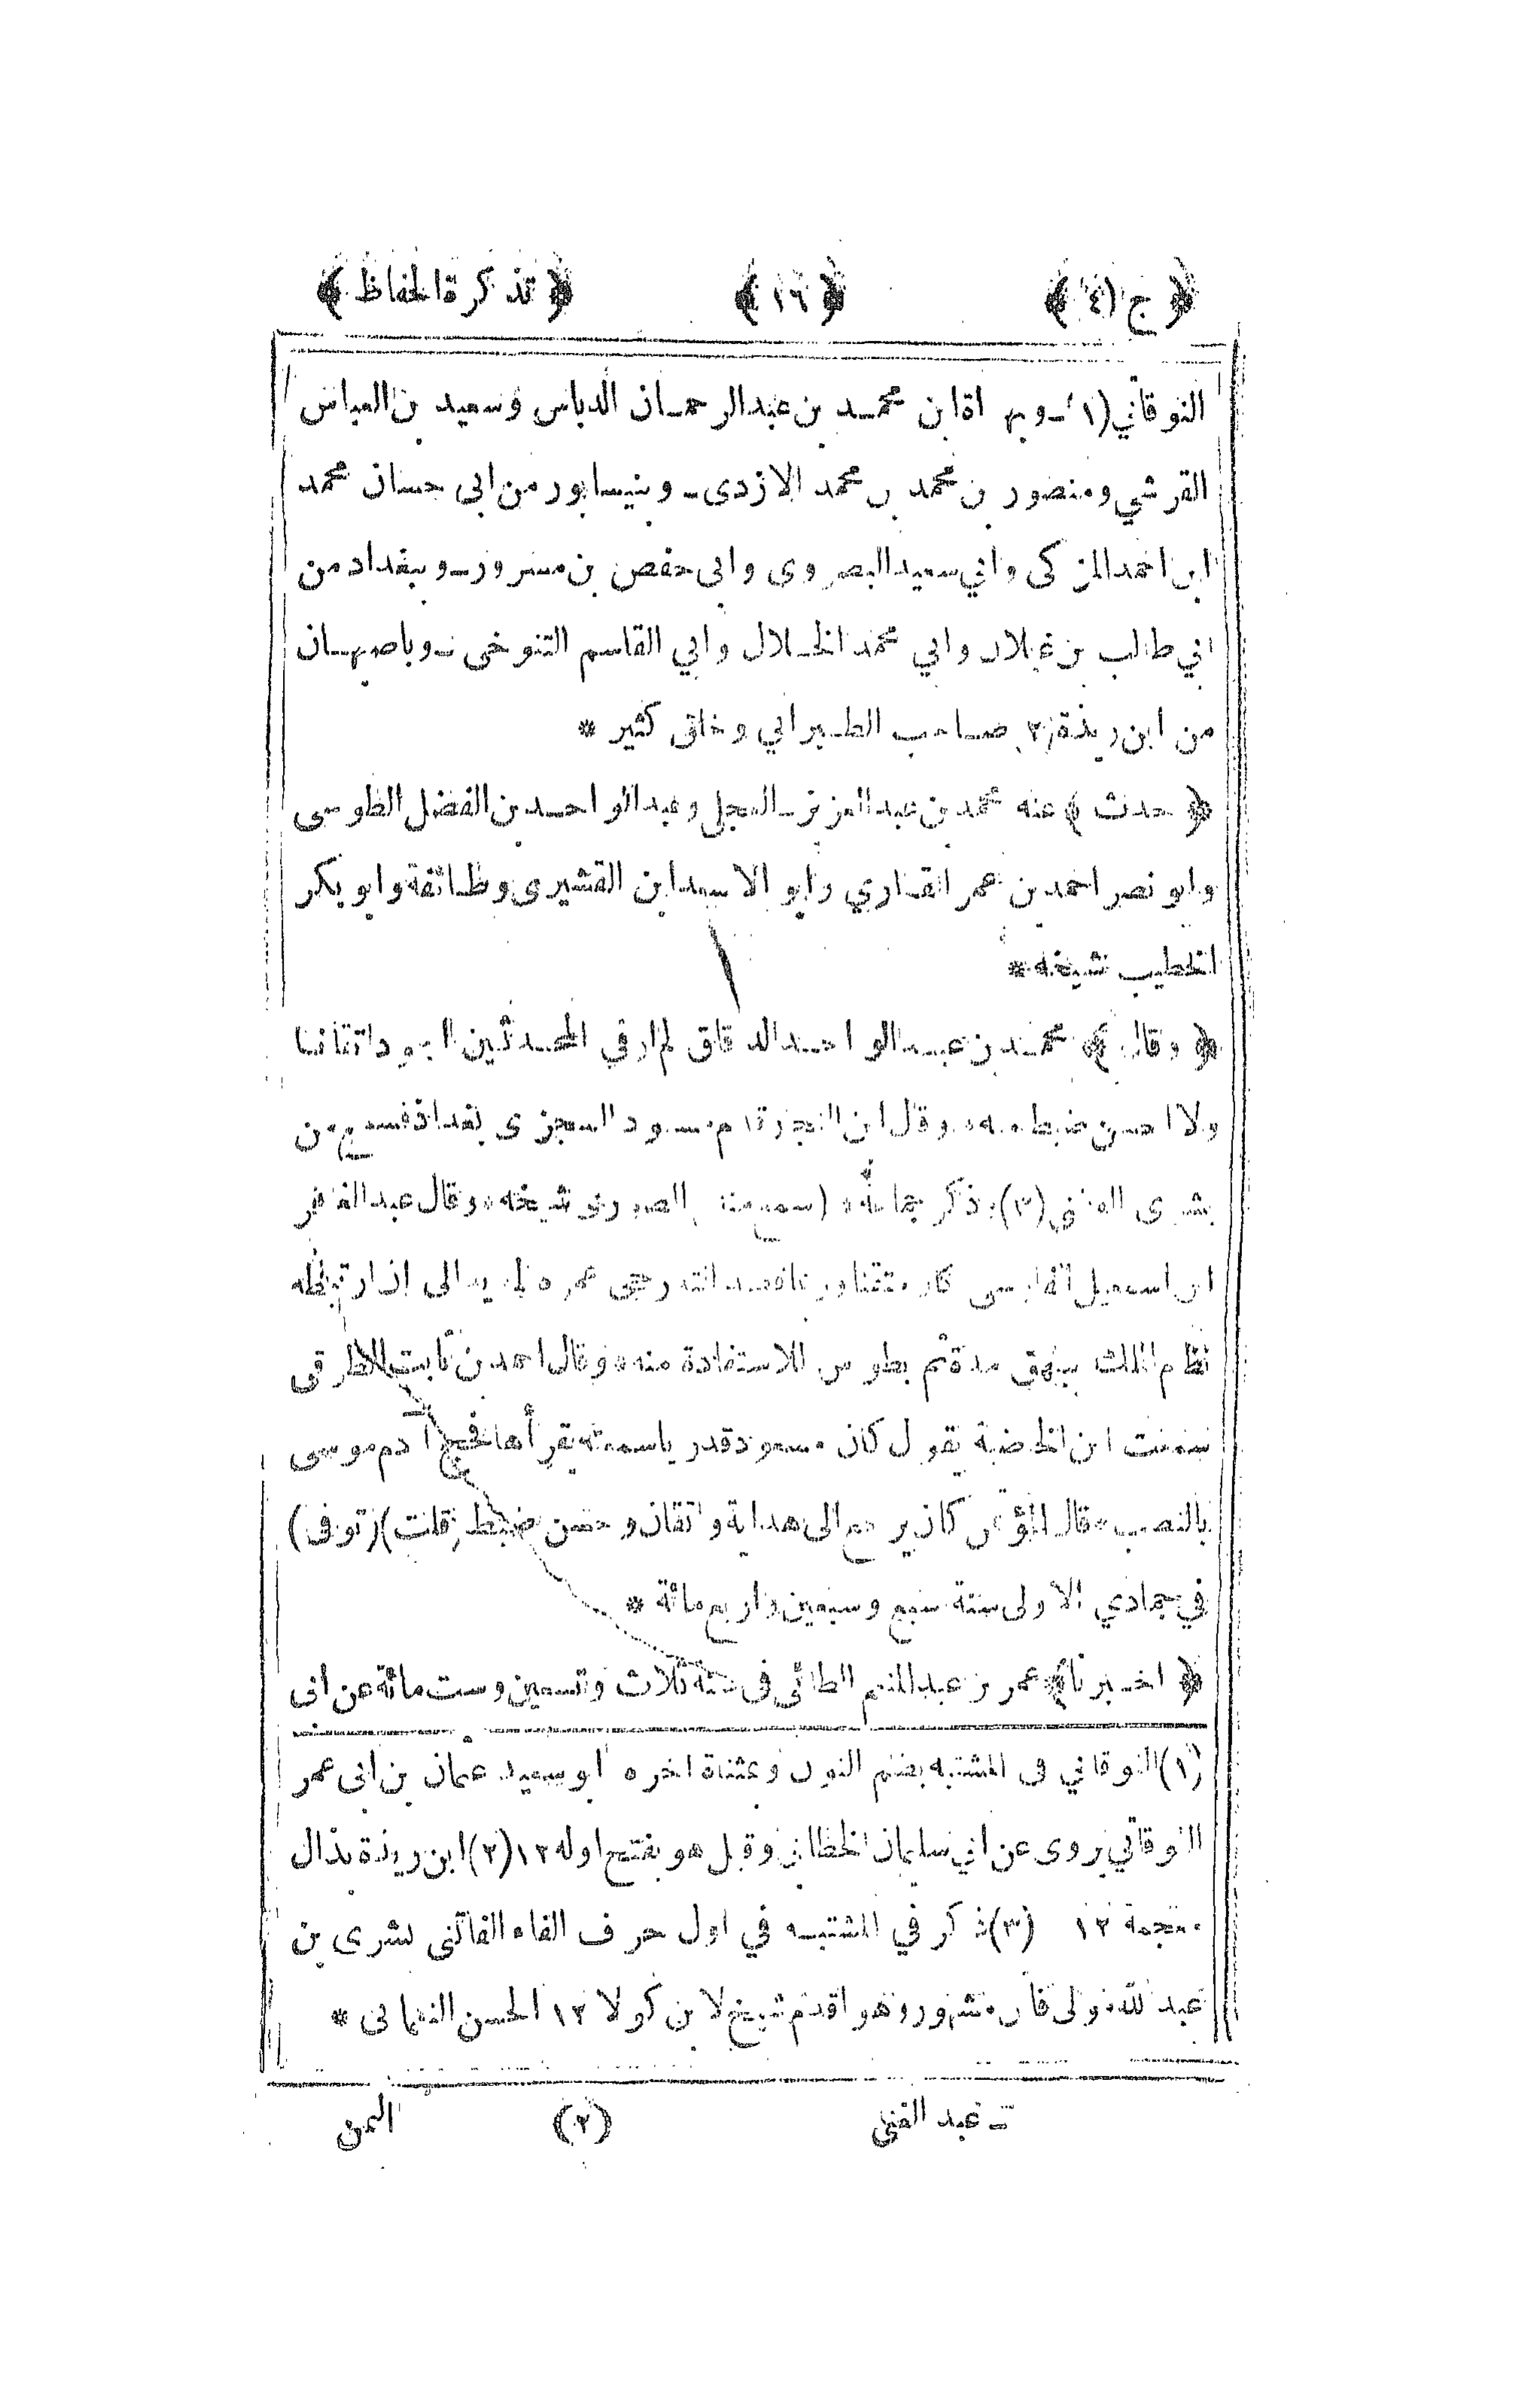 ﴿ ج (٤) ﴾ ﴿ ١٦ ﴾ ﴿ تذكرة الحفاظ ﴾
النوقاتي (١) ـ وبهراة ابن محمد بن عبدالرحمان الدباس وسعيد بن العباس
القرشي ومنصور بن محمد بن محمد الازدى ـ وبنيسابور من ابى حسان محمد
ابن احمد المزكى وابي سعيد البصروى وابى حفص بن مسرور ـ وببغداد من
ابي طالب بن غيلان وابي محمد الخلال وابي القاسم التنوخى ـ وباصبهان
من ابن ريذة (٢) صاحب الطبراني وخلق كثير *
﴿ حدث ﴾ عنه محمد بن عبدالعزيز العجلي وعبدالواحد بن الفضل الطوسى
وابو نصر احمد بن عمر الغازي وابو الاسعد ابن القشيرى وطائفة وابو بكر
الخطيب شيخه *
﴿ وقال ﴾ محمد بن عبدالواحد الدقاق لم ار في المحدثين اجود اتقانا
ولا احسن ضبطا منه ، وقال ابن النجار قدم مسعود السجزى بغداد فسمع من
بشرى الفاتني (٣) وذكر جماعة ، (سمع منه) الصوري شيخه ، وقال عبدالغافر
ابن اسمعيل الفارسى كان متقنا ورعا قصد انتدرجى عمره لذلك الى ان ارتبطه
نظام الملك ببيهق مدة ثم بطوس للاستفادة منه ، وقال احمد بن ثابت الطرقى
سمعت ابن الخاضبة يقول كان مسعود قدريا سمعته يقرأها فحج آدم موسى
بالنصب ، قال المؤتمن كان يرجع الى هداية واتقان وحسن ضبط (قلت) (توفى)
في جمادي الاولى سنة سبع وسبعين واربع مائة *
﴿ اخبرنا ﴾ عمر بن عبدالمنعم الطائى فى سنة ثلاث وتسعين وست مائة عن ابى
(١) النوقاتي فى المشتبه بضم النون وبمثناة اخره ابو سعيد عثمان بن ابى عمر
النوقاتي يروى عن ابي سليمان الخطابي وقيل هو بفتح اوله ١٢ (٢) ابن ريذة بذال
معجمة ١٢ (٣) ذكر في المشتبه في اول حرف الفاء الفاتنى بشرى بن
عبد الله مولى فاتن مشهور وهو اقدم شيخ لا بن ماكولا ١٢ الحسن النعمانى *
ـ عبد الغنى (٢) اليمن